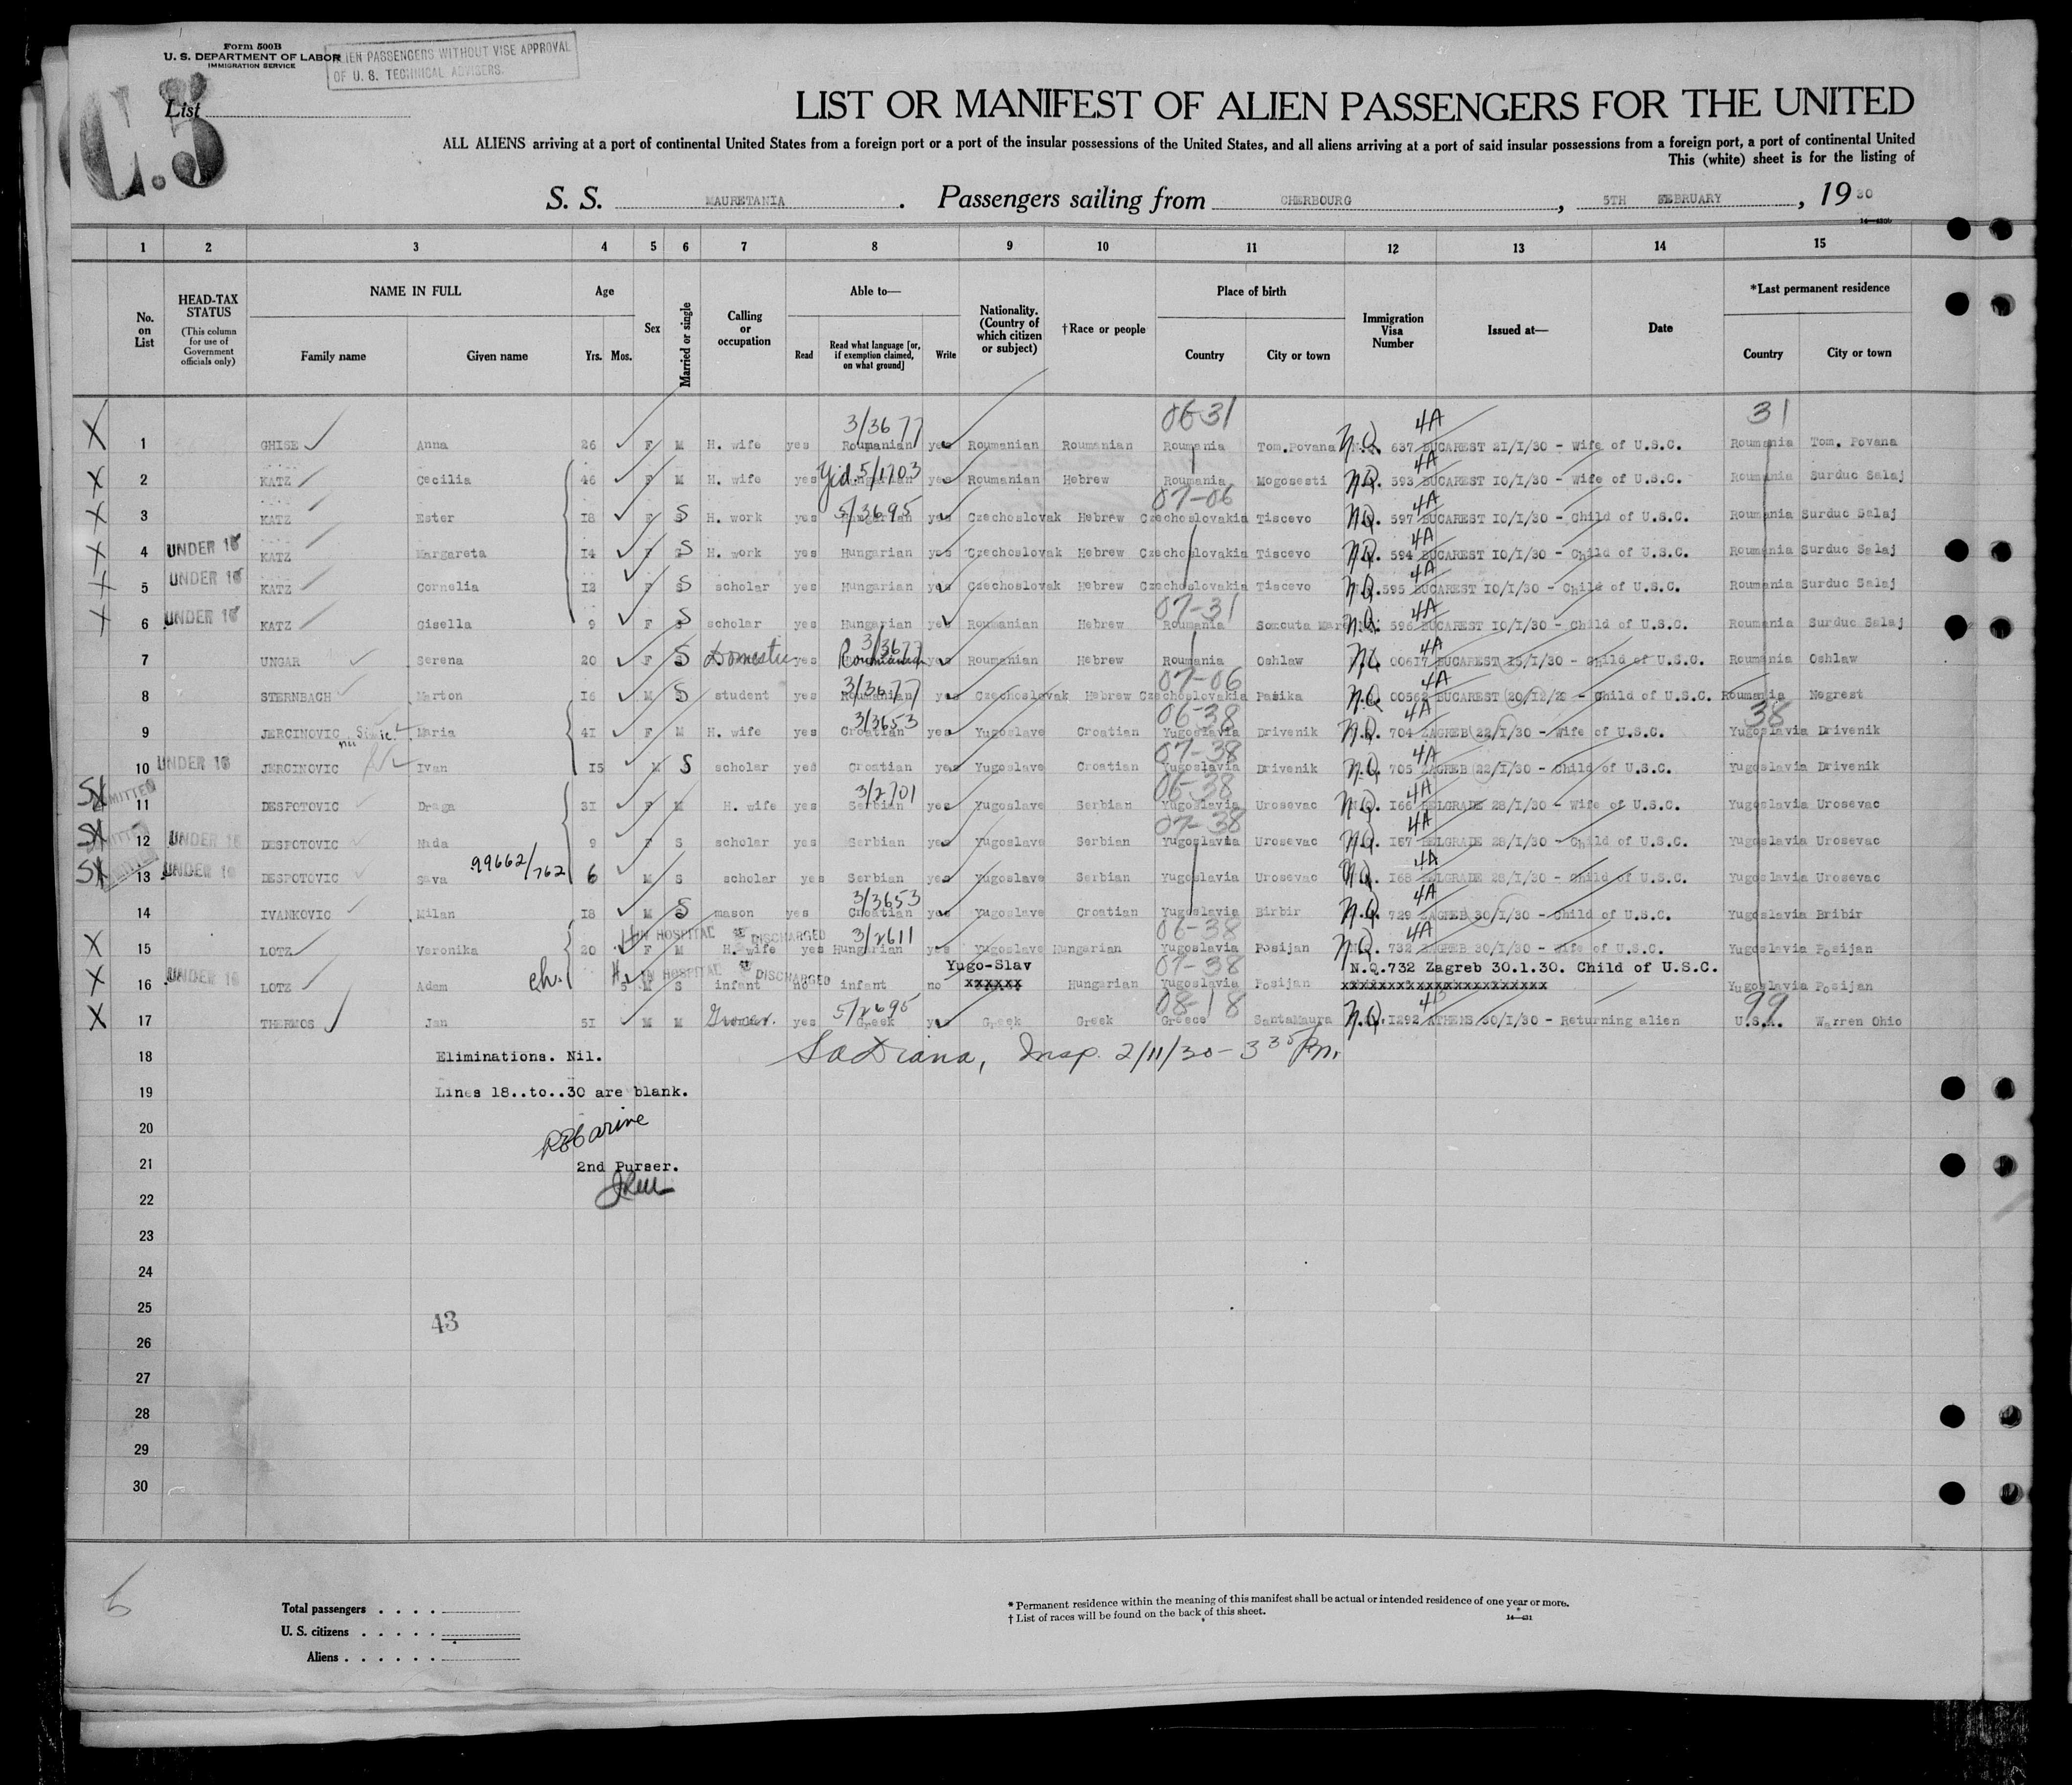 Form 500B
U. S. DEPARTMENT OF LABOR
IMMIGRATION SERVICE
ALIEN PASSENGERS WITHOUT VISE APPROVAL
OF U. S. TECHNICAL ADVISERS.
C.5
List
LIST OR MANIFEST OF ALIEN PASSENGERS FOR THE UNITED
ALL ALIENS arriving at a port of continental United States from a foreign port or a port of the insular possessions of the United States, and all aliens arriving at a port of said insular possessions from a foreign port, a port of continental United
This (white) sheet is for the listing of
S. S. MAURETANIA. Passengers sailing from CHERBOURG, 5TH FEBRUARY, 1930
1 2 3 4 5 6 7 8 9 10 11 12 13 14 15
No. on List
HEAD-TAX STATUS
(This column for use of Government officials only)
NAME IN FULL
Family name Given name
Age
Yrs. Mos.
Sex
Married or single
Calling or occupation
Able to—
Read
Read what language [or, if exemption claimed, on what ground]
Write
Nationality. (Country of which citizen or subject)
†Race or people
Place of birth
Country City or town
Immigration Visa Number
Issued at—
Date
*Last permanent residence
Country City or town
3/3677 06-31 4A 31
X 1 GHISE Anna 26 F M H. wife yes Roumanian yes Roumanian Roumanian Roumania Tom.Povana N.Q. 637 BUCAREST 21/I/30 - Wife of U.S.C. Roumania Tom. Povana
Yid. 5/1703 4A
X 2 KATZ Cecilia 46 F M H. wife yes yes Roumanian Hebrew Roumania Mogosesti N.Q. 593 BUCAREST 10/I/30 - Wife of U.S.C. Roumania Surduc Salaj
5/3695 07-06 4A
X 3 KATZ Ester 18 F S H. work yes yes Czechoslovak Hebrew Czechoslovakia Tiscevo N.Q. 597 BUCAREST 10/I/30 - Child of U.S.C. Roumania Surduc Salaj
4A
X 4 UNDER 16 KATZ Margareta 14 F S H. work yes Hungarian yes Czechoslovak Hebrew Czechoslovakia Tiscevo N.Q. 594 BUCAREST 10/I/30 - Child of U.S.C. Roumania Surduc Salaj
4A
X 5 UNDER 16 KATZ Cornelia 12 F S scholar yes Hungarian yes Czechoslovak Hebrew Czechoslovakia Tiscevo N.Q. 595 BUCAREST 10/I/30 - Child of U.S.C. Roumania Surduc Salaj
07-31 4A
X 6 UNDER 16 KATZ Gisella 9 F S scholar yes Hungarian yes Roumanian Hebrew Roumania Somcuta Mare N.Q. 596 BUCAREST 10/I/30 - Child of U.S.C. Roumania Surduc Salaj
3/3677 4A
7 UNGAR Serena 20 F S Domestic yes Roumanian yes Roumanian Hebrew Roumania Oshlaw N.Q. 00617 BUCAREST 15/I/30 - Child of U.S.C. Roumania Oshlaw
3/3677 07-06 4A
8 STERNBACH Marton 16 M S student yes Roumanian yes Czechoslovak Hebrew Czechoslovakia Pasika N.Q. 00562 BUCAREST 20/12/29 - Child of U.S.C. Roumania Negrest
3/3653 06-38 4A 38
9 JERCINOVIC Maria 41 F M H. wife yes Croatian yes Yugoslave Croatian Yugoslavia Drivenik N.Q. 704 ZAGREB 22/I/30 - Wife of U.S.C. Yugoslavia Drivenik
07-38 4A
10 UNDER 16 JERCINOVIC Ivan 15 M S scholar yes Croatian yes Yugoslave Croatian Yugoslavia Drivenik N.Q. 705 ZAGREB 22/I/30 - Child of U.S.C. Yugoslavia Drivenik
3/2701 06-38 4A
ADMITTED 11 DESPOTOVIC Draga 31 F M H. wife yes Serbian yes Yugoslave Serbian Yugoslavia Urosevac N.Q. 166 BELGRADE 28/I/30 - Wife of U.S.C. Yugoslavia Urosevac
07-38 4A
ADMITTED 12 UNDER 16 DESPOTOVIC Nada 9 F S scholar yes Serbian yes Yugoslave Serbian Yugoslavia Urosevac N.Q. 167 BELGRADE 28/I/30 - Child of U.S.C. Yugoslavia Urosevac
99662/762 4A
ADMITTED 13 UNDER 16 DESPOTOVIC Sava 6 M S scholar yes Serbian yes Yugoslave Serbian Yugoslavia Urosevac N.Q. 168 BELGRADE 28/I/30 - Child of U.S.C. Yugoslavia Urosevac
3/3653 4A
14 IVANKOVIC Milan 18 M S mason yes Croatian yes Yugoslave Croatian Yugoslavia Birbir N.Q. 729 ZAGREB 30/I/30 - Child of U.S.C. Yugoslavia Bribir
IN HOSPITAL DISCHARGED 3/2611 06-38 4A
X 15 LOTZ Veronika 20 F M H. wife yes Hungarian yes Yugoslave Hungarian Yugoslavia Posijan N.Q. 732 ZAGREB 30/I/30 - Wife of U.S.C. Yugoslavia Posijan
IN HOSPITAL DISCHARGED Yugo-Slav 07-38 N.Q.732 Zagreb 30.1.30. Child of U.S.C.
X 16 UNDER 16 LOTZ Adam ch. 5 M S infant no infant no xxxxxx Hungarian Yugoslavia Posijan xxxxxxxxxxxxxxxxxxxxxxx Yugoslavia Posijan
5/2695 08-18 4B 99
X 17 THERMOS Jan 51 M M Grocer. yes Greek yes Greek Greek Greece SantaMaura N.Q. 1292 ATHENS 30/I/30 - Returning alien U.S.A. Warren Ohio
18 Eliminations. Nil. Insp. 2/11/30 - 3 35 Pm.
19 Lines 18..to..30 are blank.
20
21 2nd Purser.
22
23
24
25
43
26
27
28
29
30
Total passengers . . . .
U. S. citizens . . . . .
Aliens . . . . . .
* Permanent residence within the meaning of this manifest shall be actual or intended residence of one year or more.
† List of races will be found on the back of this sheet.